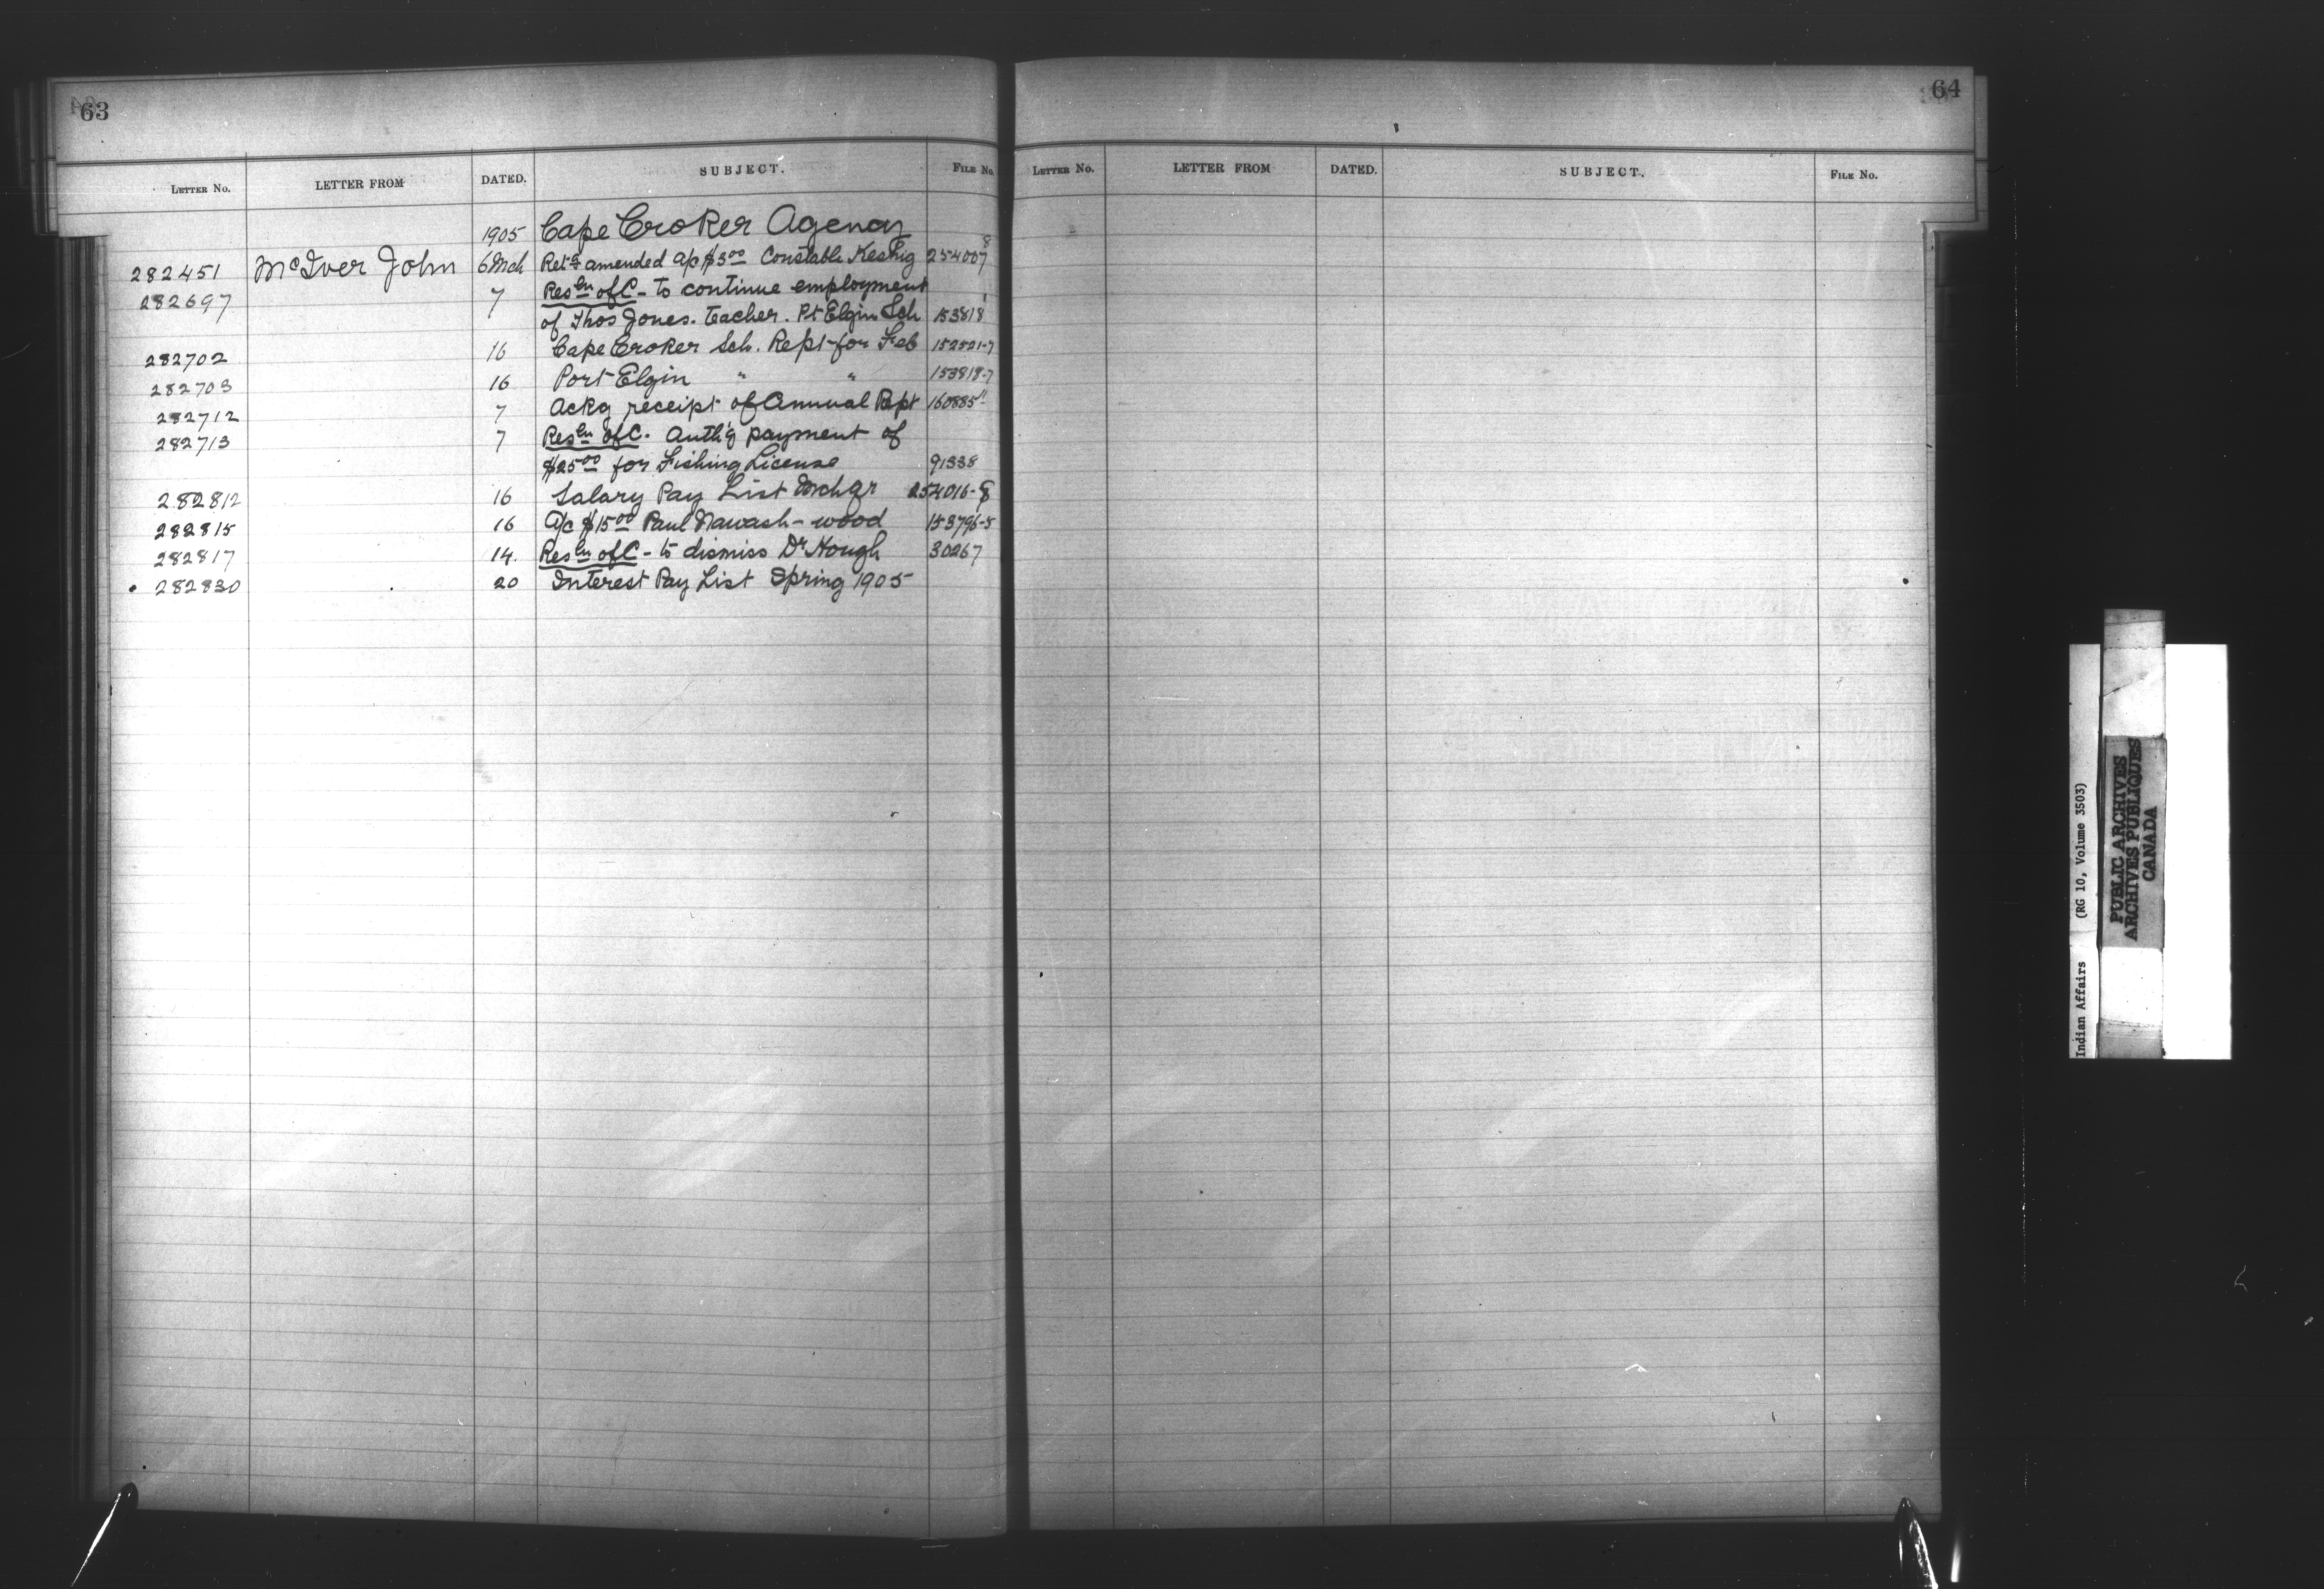 63
LETTER No. LETTER FROM DATED. SUBJECT. FILE No.
1905 Cape Croker Agency
282451 McIver John 6 Mch Retg amended a/c $3.00 Constable Keshig 254007 8
282697 7 Resln of C - to continue employment
of Thos Jones. Teacher. Pt Elgin Sch 153818
282702 16 Cape Croker Sch. Rept for Feb 152521-7
282703 16 Port Elgin " " 153818-7
282712 7 Ackg receipt of Annual Rept 160885
282713 7 Resln of C. Auth'g payment of
$25.00 for Fishing License 91338
282812 16 Salary Pay List Mch qr 254016-8
282815 16 a/c $15.00 Paul Nawash - wood 153796-5
282817 14. Resln of C - to dismiss Dr Hough 30267
282830 20 Interest Pay List Spring 1905
64
LETTER No. LETTER FROM DATED. SUBJECT. FILE No.
Indian Affairs (RG 10, Volume 3503)
PUBLIC ARCHIVES
ARCHIVES PUBLIQUES
CANADA